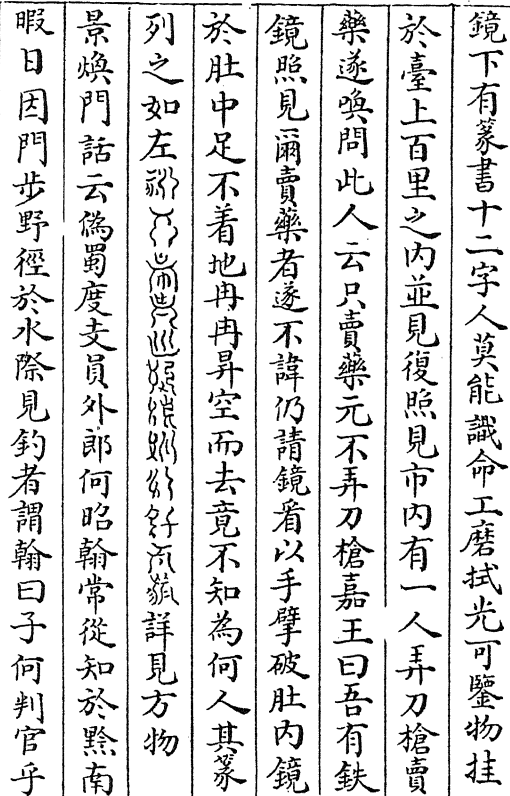 鏡下有篆書十二字人莫能識命工磨拭光可鑒物挂
於臺上百里之內並見復照見市內有一人弄刀槍賣
藥遂喚問此人云只賣藥元不弄刀槍嘉王曰吾有鉄
鏡照見爾賣藥者遂不諱仍請鏡看以手擘破肚內鏡
於肚中足不着地冉冉昇空而去竟不知為何人其篆
列之如左詳見方物
景煥門話云偽蜀度支員外郎何昭翰常從知於黔南
暇日因門步野徑於水際見釣者謂翰曰子何判官乎